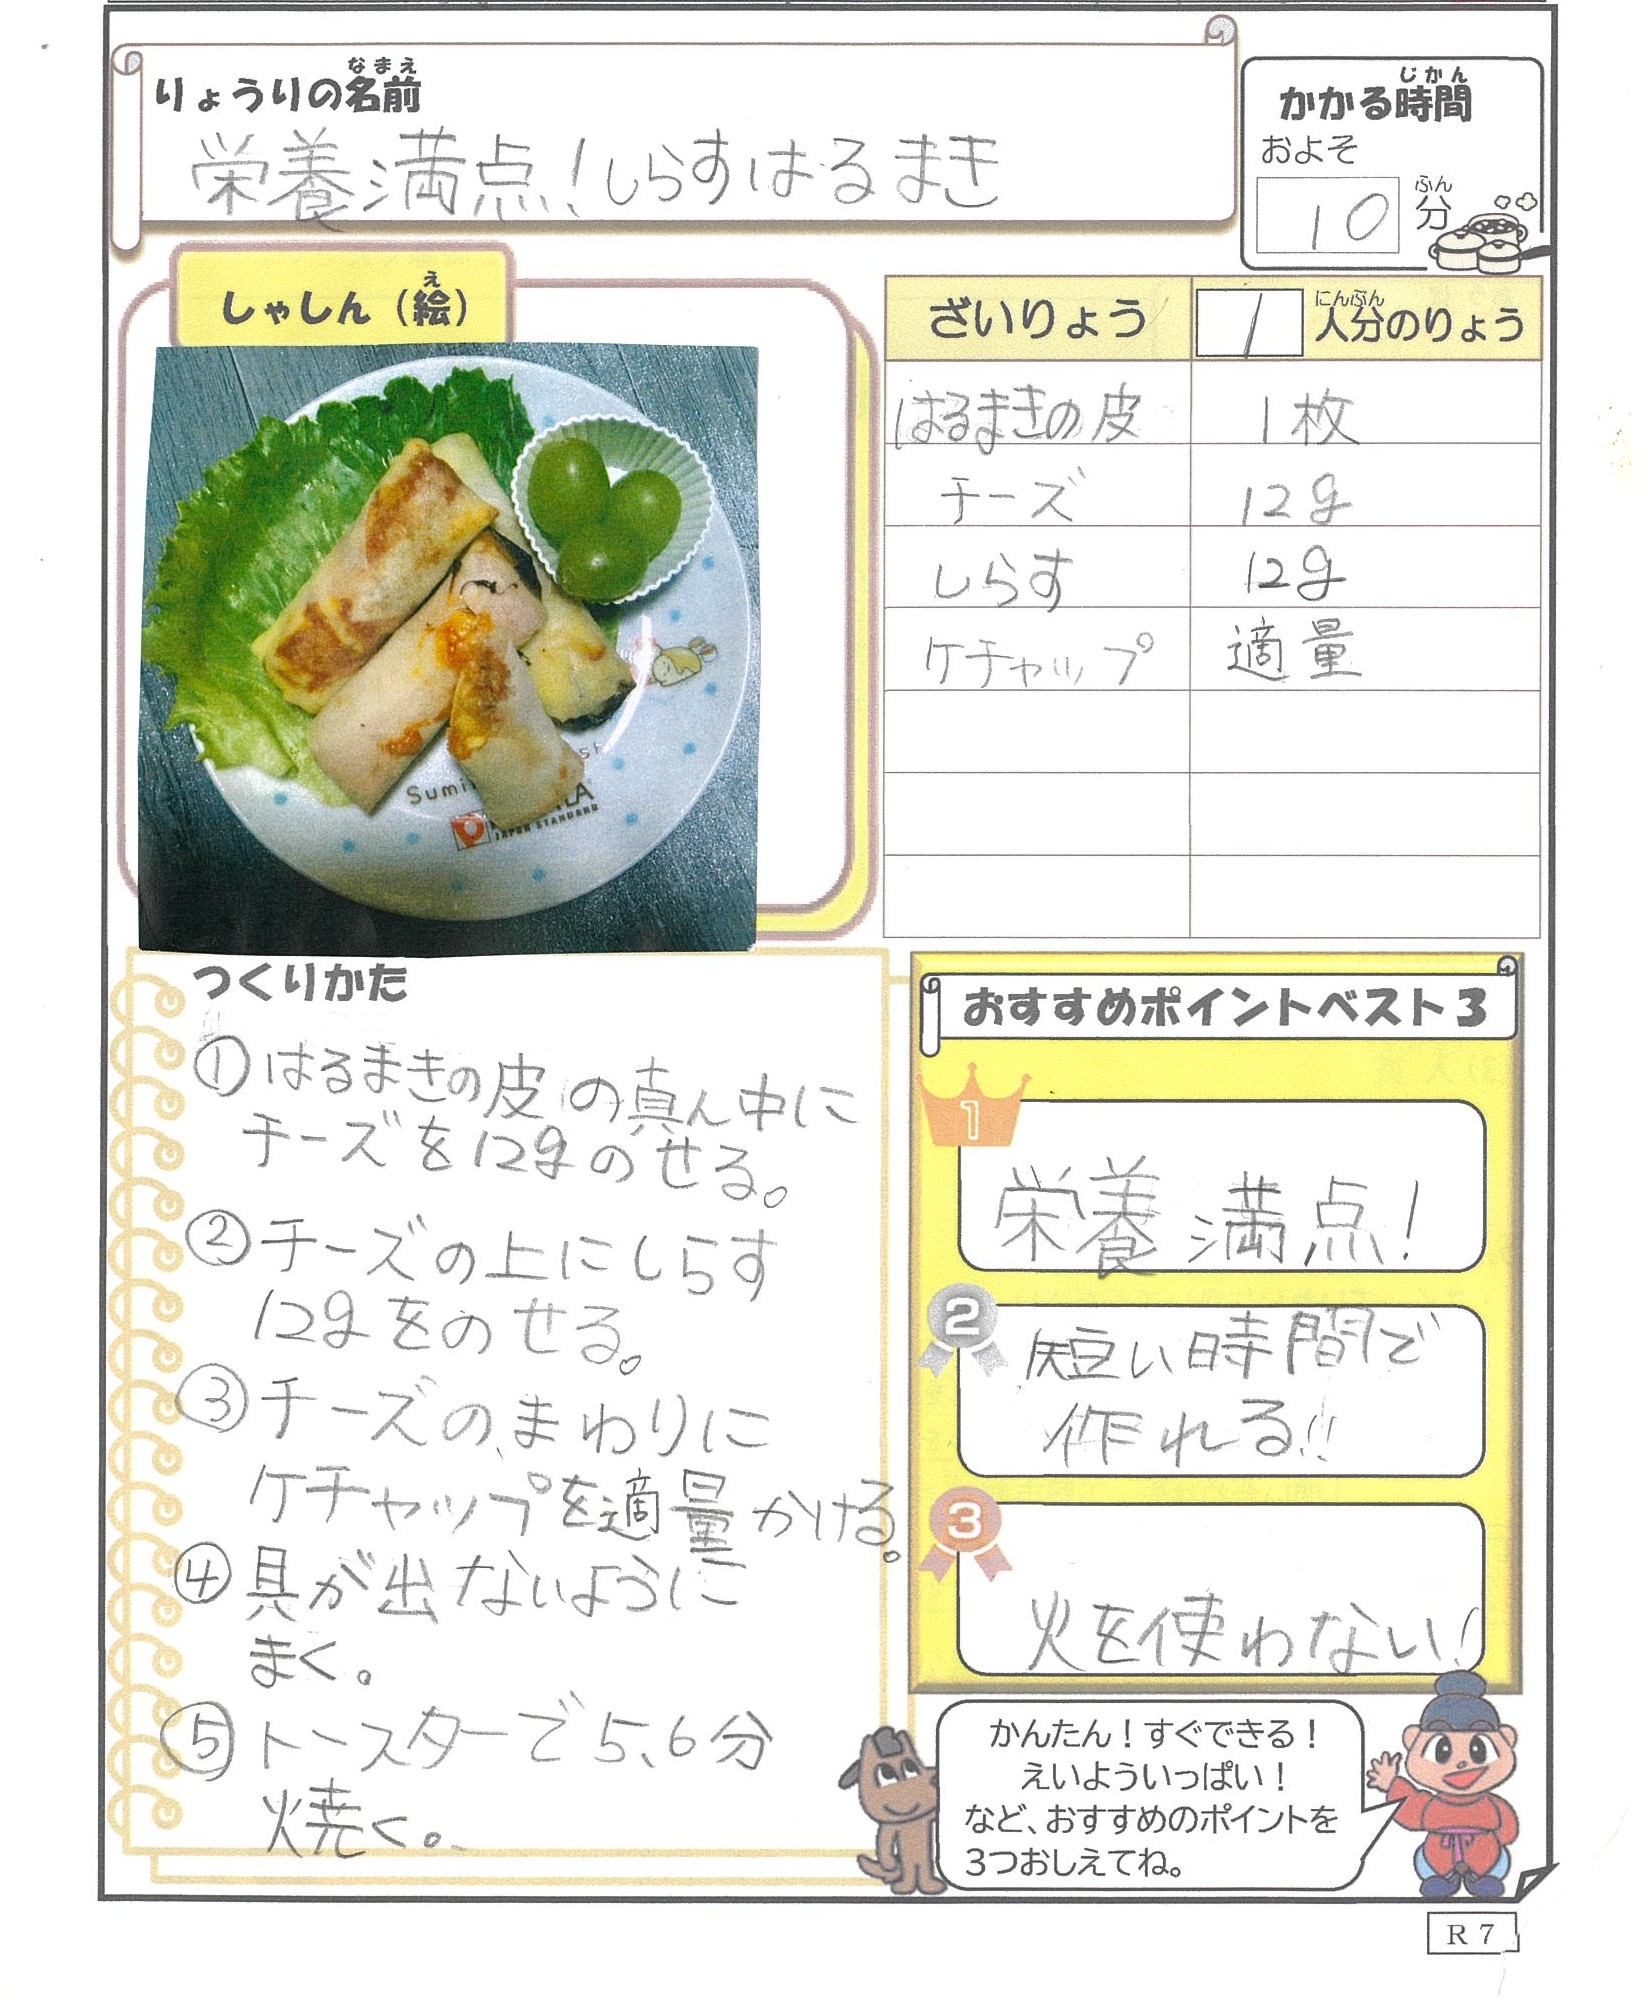 なまえ
りょうりの名前
栄養満点!しらすはるまき
じかん
かかる時間
およそ
10
ふん
分
え
しゃしん(絵)
Sumi
JAPAN STANDARD
ざいりょう
1
にんぶん
人分のりょう
はるまきの皮 1枚
チーズ 12g
しらす 12g
ケチャップ 適量
つくりかた
①はるまきの皮の真ん中に
チーズを12gのせる。
②チーズの上にしらす
12gをのせる。
③チーズのまわりに
ケチャップを適量かける。
④具が出ないように
まく。
⑤トースターで5、6分
焼く。
おすすめポイントベスト3
1
栄養満点!
2
短い時間で
作れる!!
3
火を使わない!
かんたん!すぐできる!
えいよういっぱい!
など、おすすめのポイントを
3つおしえてね。
R7